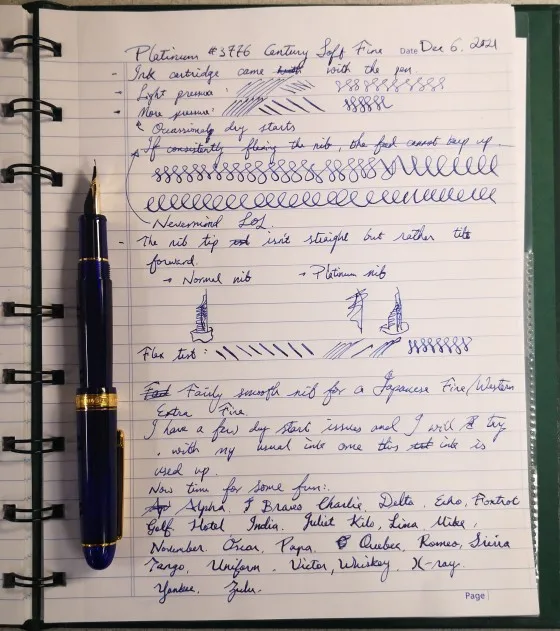 Platinum #3776 Century Soft Fine Date Dec 6, 2021
- Ink cartridge came with the pen.
- Light pressure:
- More pressure:
Occassionaly dry starts
If consistently flexing the nib, the feed cannot keep up.
Nevermind LOL
- The nib tip isn't straight but rather tilt
forward.
→ Normal nib → Platinum nib
Flex test:
Fairly smooth nib for a Japanese Fine/Western
Extra Fine.
I have a few dry start issues and I will try
with my usual inks once this ink is
used up.
Now time for some fun:
Alpha, Bravo Charlie, Delta, Echo, Foxtrot
Golf Hotel India, Juliet Kilo, Lima, Mike,
November, Oscar, Papa, Quebec, Romeo, Sierra
Tango, Uniform, Victor, Whiskey, X-ray.
Yankee, Zulu.
Page